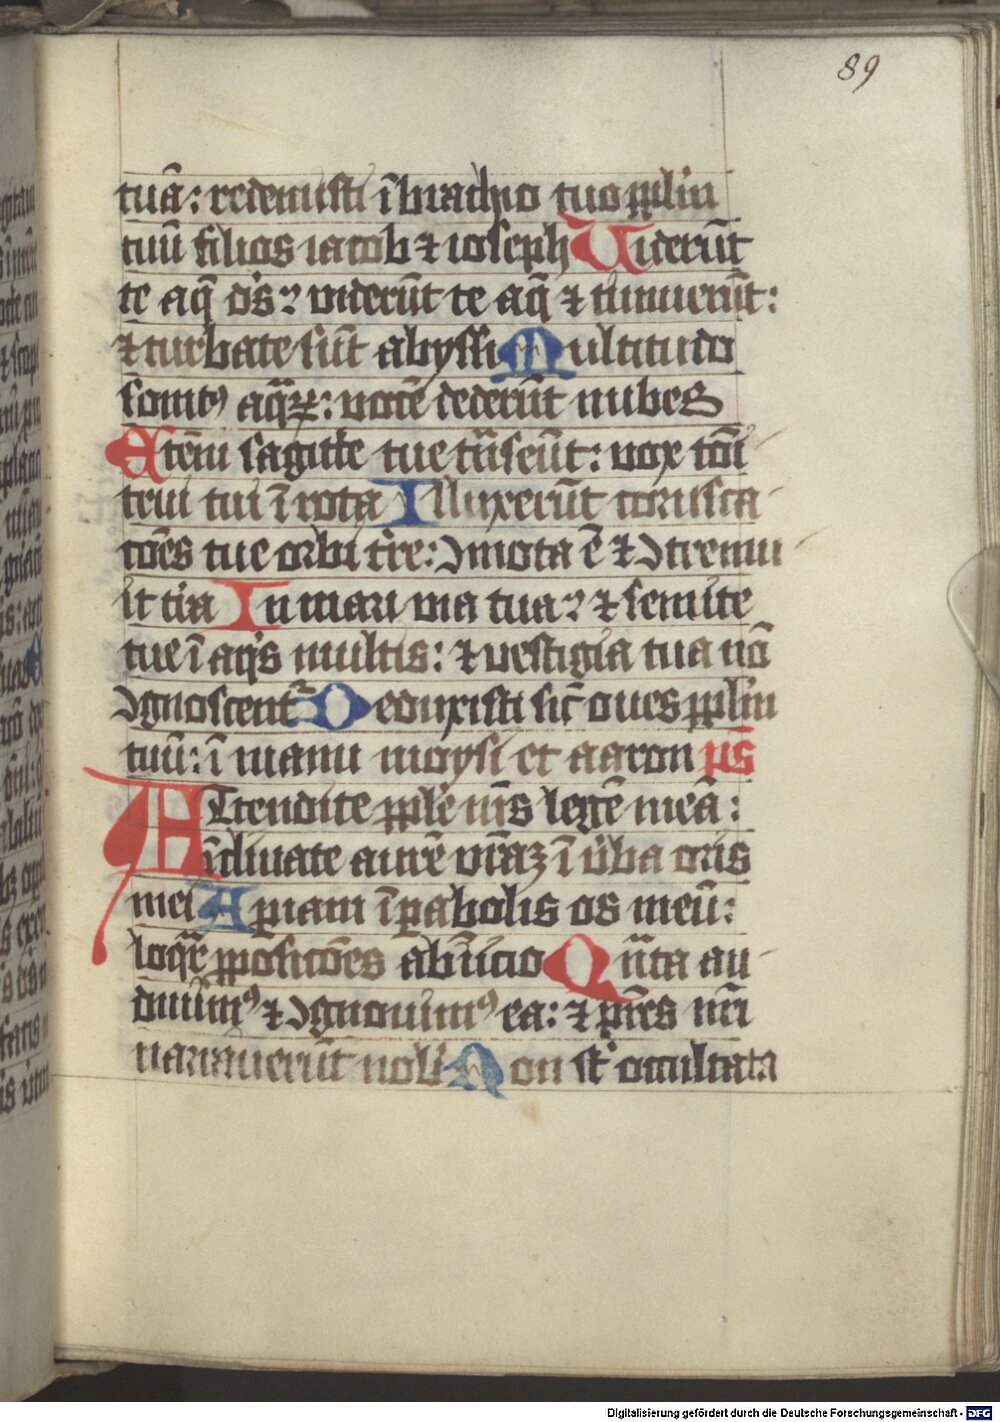 89
tuā: redemisti ī brachio tuo pplm̄
tuū filios iacob ⁊ ioseph Uiderūt
te aq̄ ds̄? viderūt te aq̄ ⁊ timuerūt:
⁊ turbate sūt abyssi Multitudo
sonitꝰ aq̄ꝝ: vocē dederūt nubes
Etem̄ sagitte tue trāseūt: vox toī
trui tui ī rota Illuxerūt corusca
cōes tue orbi tr̄e: ꝯmota ē ⁊ ꝯtremu
it tr̄a In mari via tua? ⁊ semite
tue ī aqͥs multis: ⁊ vestigia tua nō
ꝯgnoscent᷑ Deduxisti sic̄ oues pplm̄
tuū: ī manu moysi et aaron ps̄
ATtendite pple ms̄ legē meā:
īclinate aurē vr̄aꝫ ī v̄ba oris
mei Apiam ī ꝑabolis os meū:
loqr̄ ꝓposicōes ab īicio Qn̄ta au
diuimꝰ ⁊ ꝯgnouimꝰ ea: ⁊ pr̄es nr̄i
narrauerūt nob̄ Non st̄ occultata
Digitalisierung gefördert durch die Deutsche Forschungsgemeinschaft - DFG